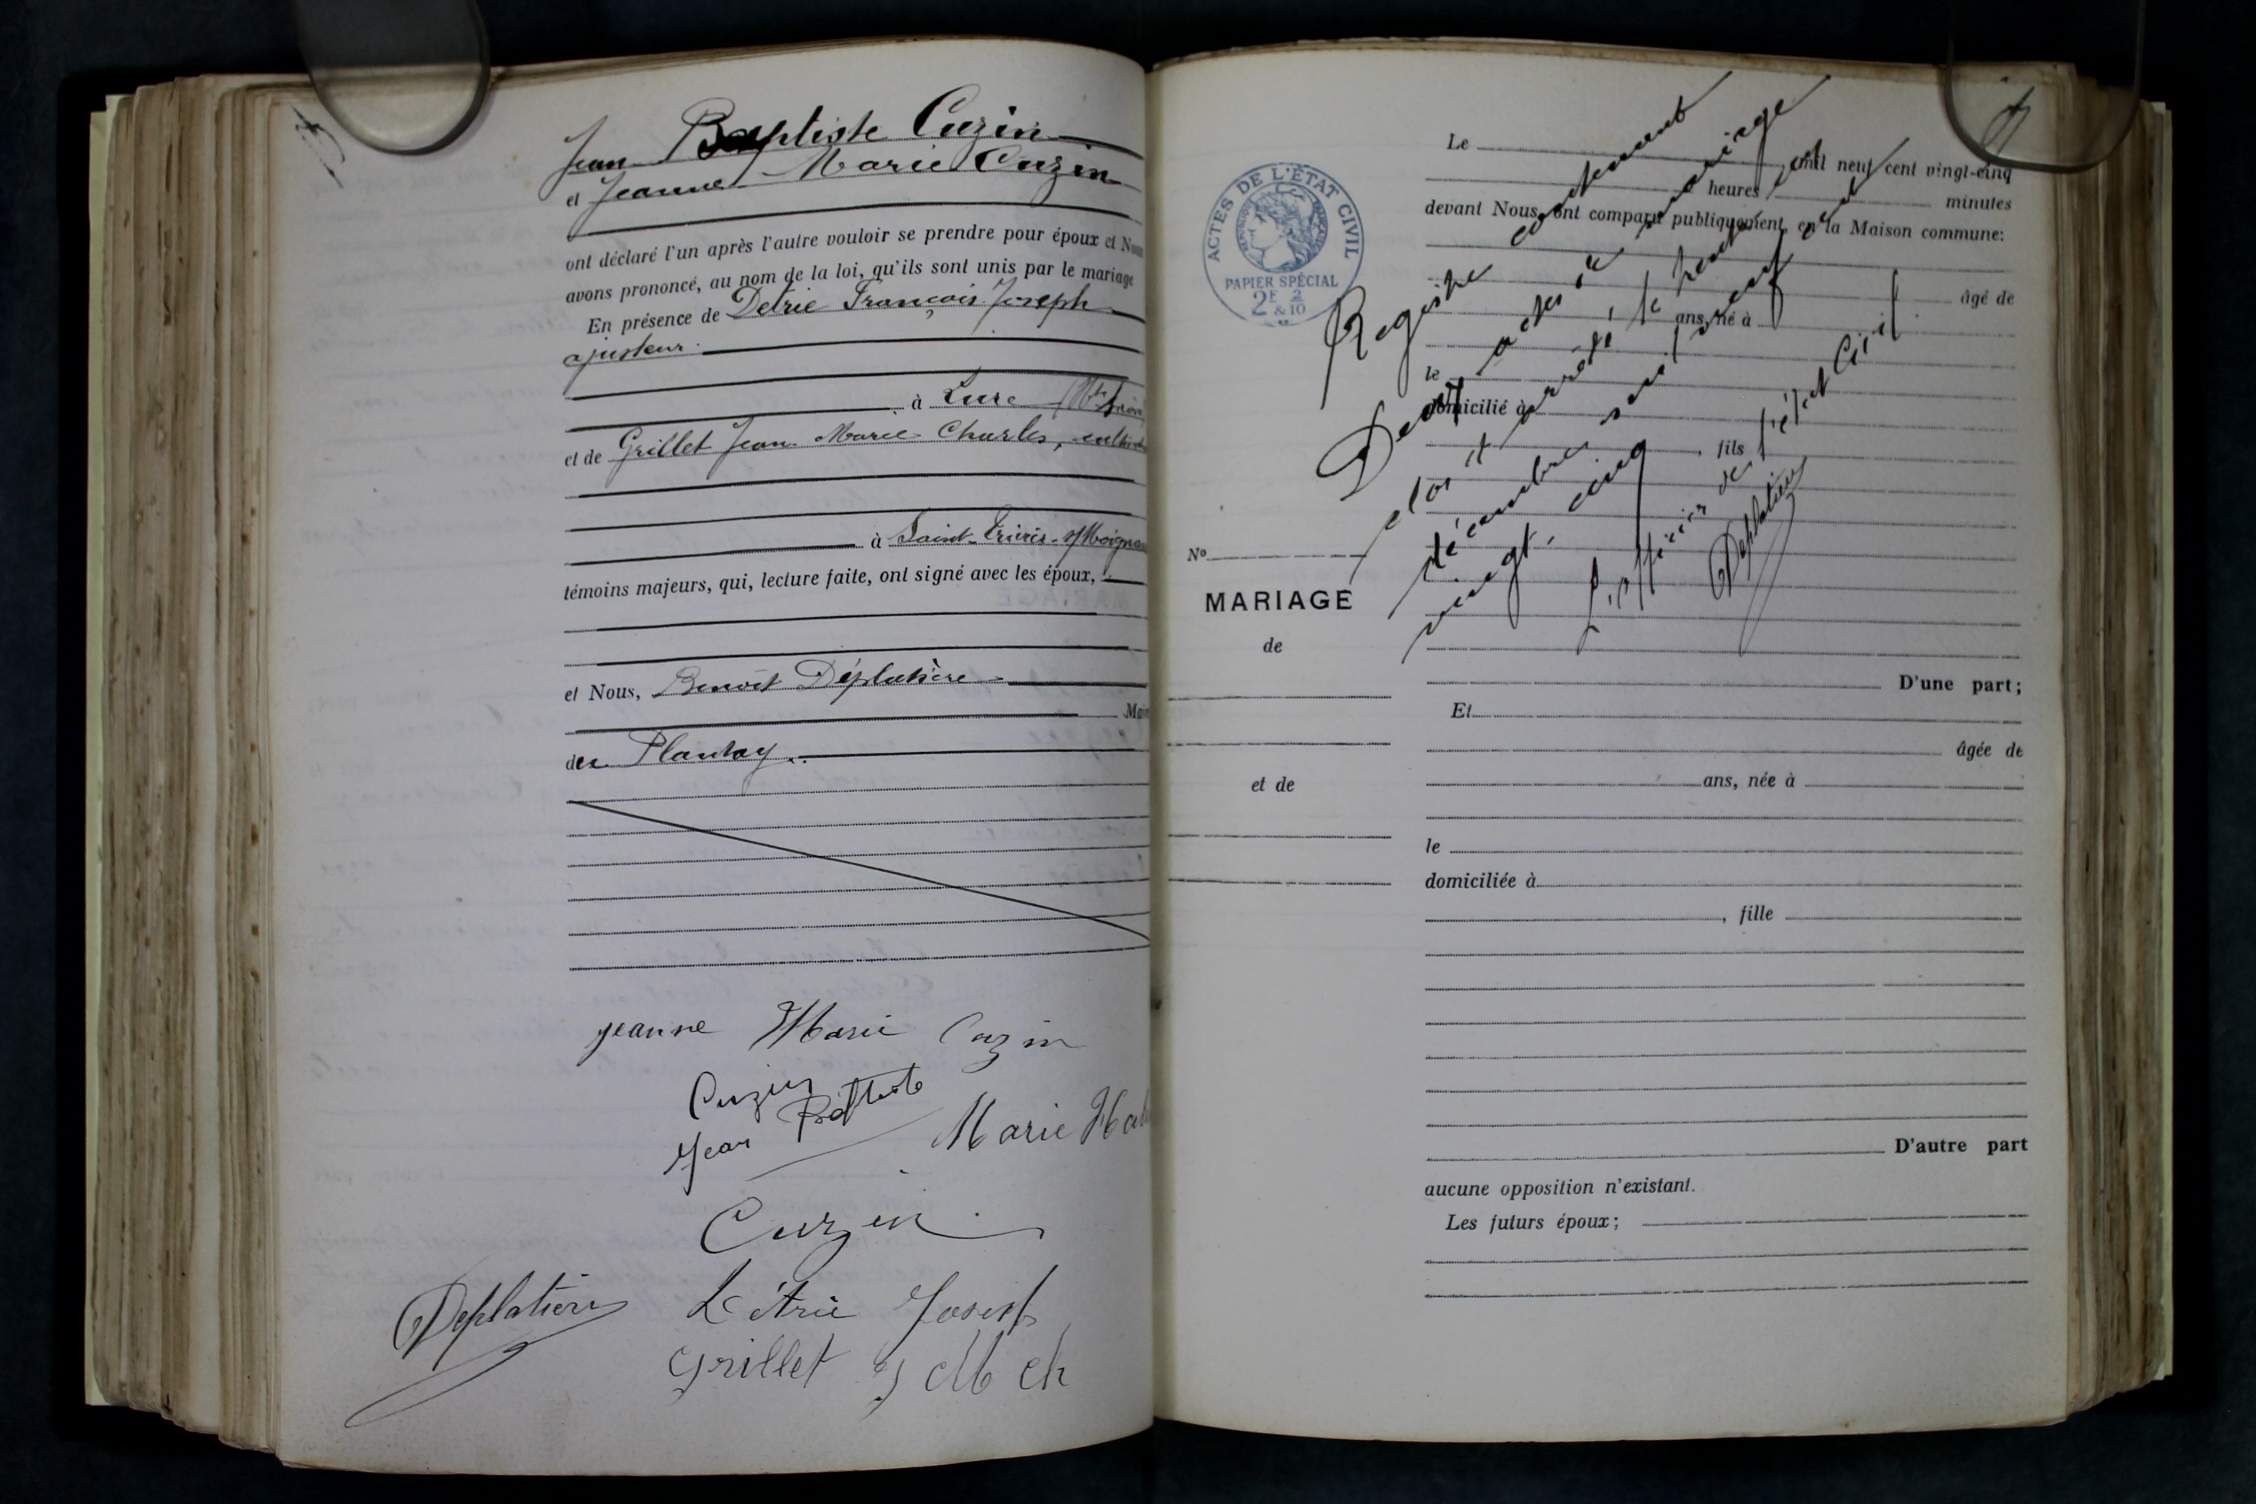 Jean Baptiste Cuzin
et Jeanne Marie Cuzin
ont déclaré l'un après l'autre vouloir se prendre pour époux et Nous
avons prononcé, au nom de la loi, qu'ils sont unis par le mariage
En présence de Detrie François Joseph
ajusteur.
à Lure
et de Grillet Jean Marie Charles,
à Saint-Trivier-s/Moignans
témoins majeurs, qui, lecture faite, ont signé avec les époux,
et Nous, Benoît Déplatière
Maire
de Plantay.
Jeanne Marie Cuzin
Cuzin
Jean Bptiste
Marie
Cuzin
Déplatière
Détrie Joseph
Grillet J M Ch
ACTES DE L'ÉTAT CIVIL
PAPIER SPÉCIAL
2F 2/10
&
No
MARIAGE
de
et de
Le mil neuf cent vingt-cinq
heures minutes
devant Nous, ont comparu publiquement, en la Maison commune:
âgé de
ans, né à
le
domicilié à
, fils
D'une part;
Et
âgée de
ans, née à
le
domiciliée à
, fille
D'autre part
aucune opposition n'existant.
Les futurs époux;
Registre contenant
Deux actes de mariage
clos et arrêté le trente et un
décembre mil neuf cent
vingt-cinq
L'officier de l'état Civil.
Déplatière